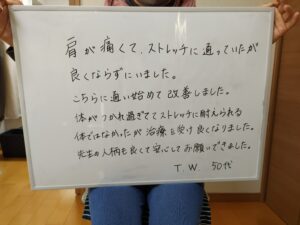 肩が痛くて、ストレッチに通っていたが
良くならずにいました。
こちらに通い始めて改善しました。
体がつかれ過ぎててストレッチに耐えられる
体ではなかったが治療を受け良くなりました。
先生の人柄も良くて安心してお願いできました。
T.W. 50代